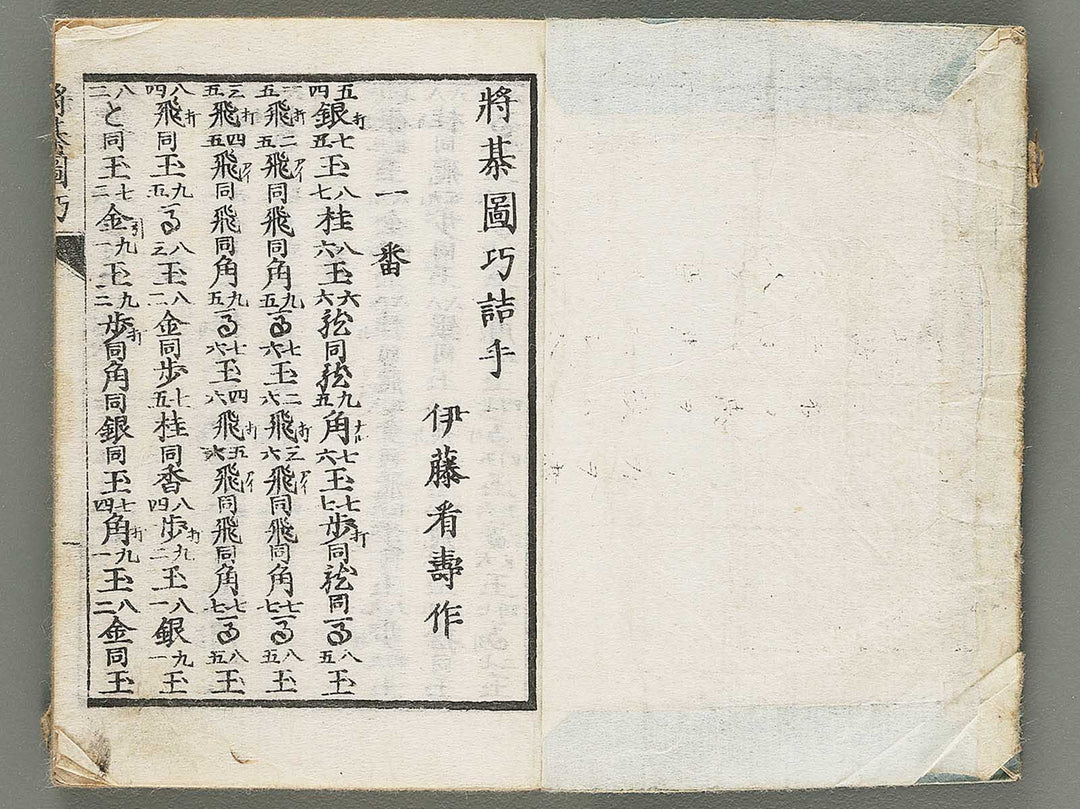 將棊圖巧詰手
伊藤看壽作
一番
五四銀打七五玉八七桂八六玉六六龍同龍九五角ナル七六玉七七歩打同龍同馬八五玉
一五飛打二五飛アイ同飛同角九五馬七六玉二六飛打三六飛アイ同飛同角七七馬八五玉
三五飛打四五飛アイ同飛同角九五馬七六玉四六飛打五六飛アイ同飛同角七七馬八五玉
八四飛打同玉九五馬八三玉八二金同歩七五桂同香八四歩打九二玉八一銀九一玉
八二と同玉七二金引九一玉九二歩打同角同銀同玉七四角打九一玉八二金同玉
將棊圖巧
一